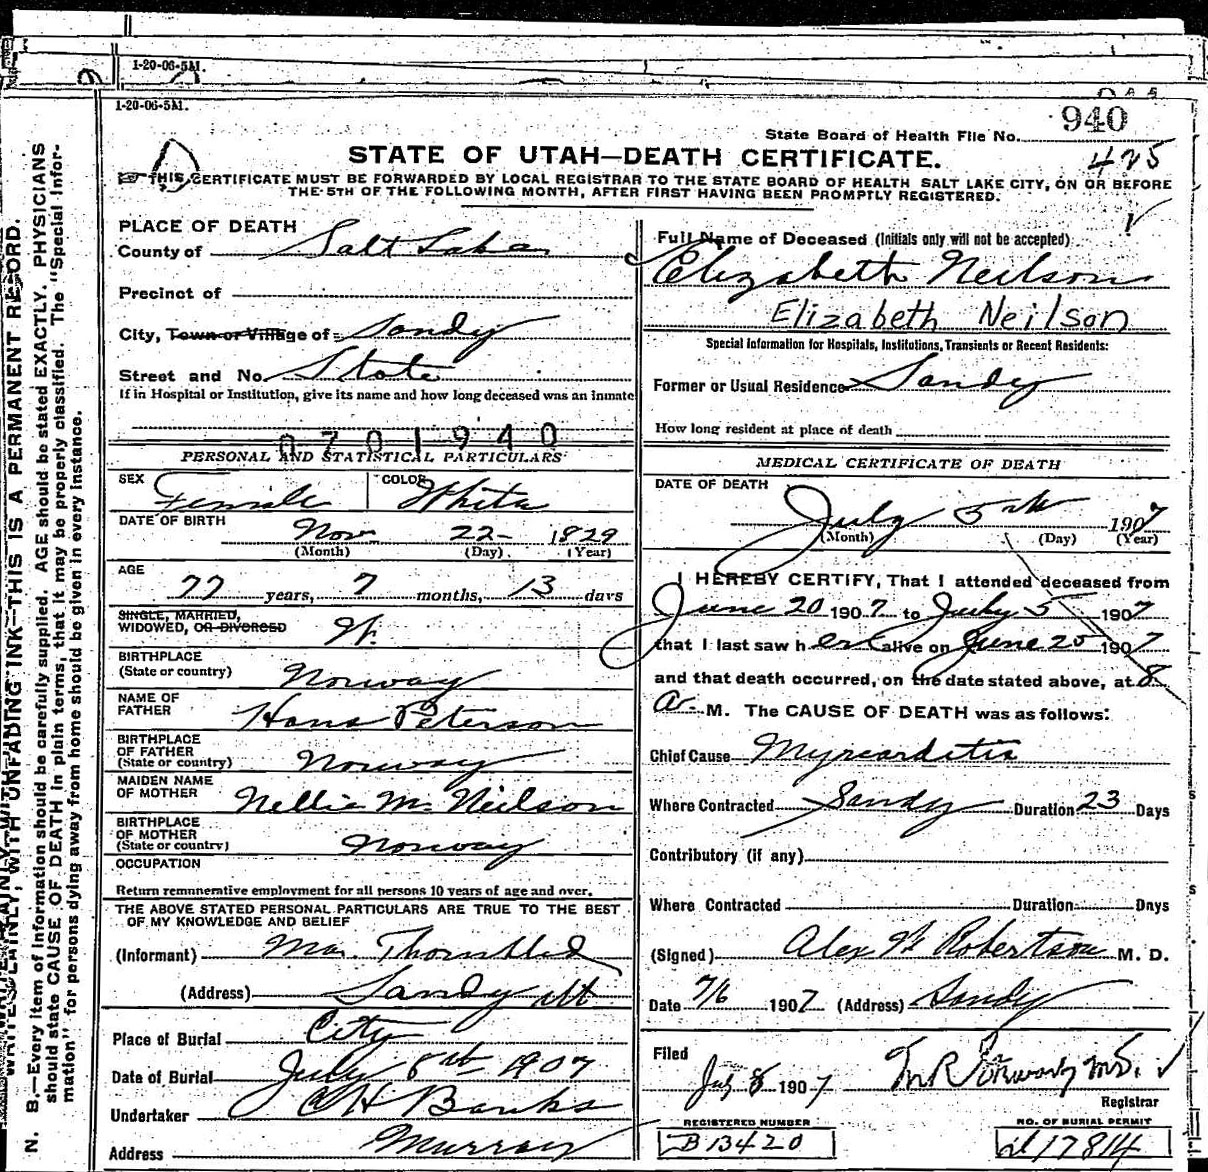 1-20-06-5M.
1-20-06-5M.
940
State Board of Health File No.
425
STATE OF UTAH—DEATH CERTIFICATE.
THIS CERTIFICATE MUST BE FORWARDED BY LOCAL REGISTRAR TO THE STATE BOARD OF HEALTH SALT LAKE CITY, ON OR BEFORE
THE 5TH OF THE FOLLOWING MONTH, AFTER FIRST HAVING BEEN PROMPTLY REGISTERED.
PLACE OF DEATH
County of Salt Lake
Precinct of
City, Town or Village of Sandy
Street and No. State
If in Hospital or Institution, give its name and how long deceased was an inmate
0701940
PERSONAL AND STATISTICAL PARTICULARS
SEX Female COLOR White
DATE OF BIRTH Nov 22- 1829
(Month) (Day) (Year)
AGE 77 years, 7 months, 13 days
SINGLE, MARRIED,
WIDOWED, OR DIVORCED W.
BIRTHPLACE
(State or country) Norway
NAME OF
FATHER Hans Peterson
BIRTHPLACE
OF FATHER
(State or country) Norway
MAIDEN NAME
OF MOTHER Nellie M. Neilson
BIRTHPLACE
OF MOTHER
(State or country) Norway
OCCUPATION
Return remunerative employment for all persons 10 years of age and over.
THE ABOVE STATED PERSONAL PARTICULARS ARE TRUE TO THE BEST
OF MY KNOWLEDGE AND BELIEF
(Informant)
(Address) Sandy Ut
Place of Burial City
Date of Burial July 8th 1907
Undertaker Banks
Address Murray
Full Name of Deceased (Initials only will not be accepted)
Elizabeth Neilson
Elizabeth Neilson
Special Information for Hospitals, Institutions, Transients or Recent Residents:
Former or Usual Residence Sandy
How long resident at place of death
MEDICAL CERTIFICATE OF DEATH
DATE OF DEATH
July 5th 1907
(Month) (Day) (Year)
I HEREBY CERTIFY, That I attended deceased from
June 20 1907 to July 5 1907
that I last saw her alive on June 20 1907
and that death occurred, on the date stated above, at 8
A. M. The CAUSE OF DEATH was as follows:
Chief Cause Myocarditis
Where Contracted Sandy Duration 23 Days
Contributory (if any)
Where Contracted Duration Days
(Signed) Alex Robertson M. D.
Date 7/6 1907 (Address) Sandy
Filed
July 8 1907
Registrar
REGISTERED NUMBER
B13420
NO. OF BURIAL PERMIT
17814
WRITE PLAINLY, WITH UNFADING INK—THIS IS A PERMANENT RECORD.
N. B.—Every item of information should be carefully supplied. AGE should be stated EXACTLY. PHYSICIANS
should state CAUSE OF DEATH in plain terms, that it may be properly classified. The "Special Infor-
mation" for persons dying away from home should be given in every instance.